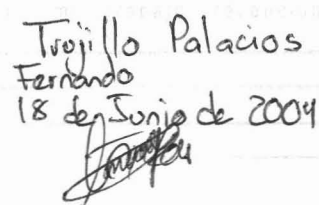 Trujillo Palacios
Fernando
18 de Junio de 2004